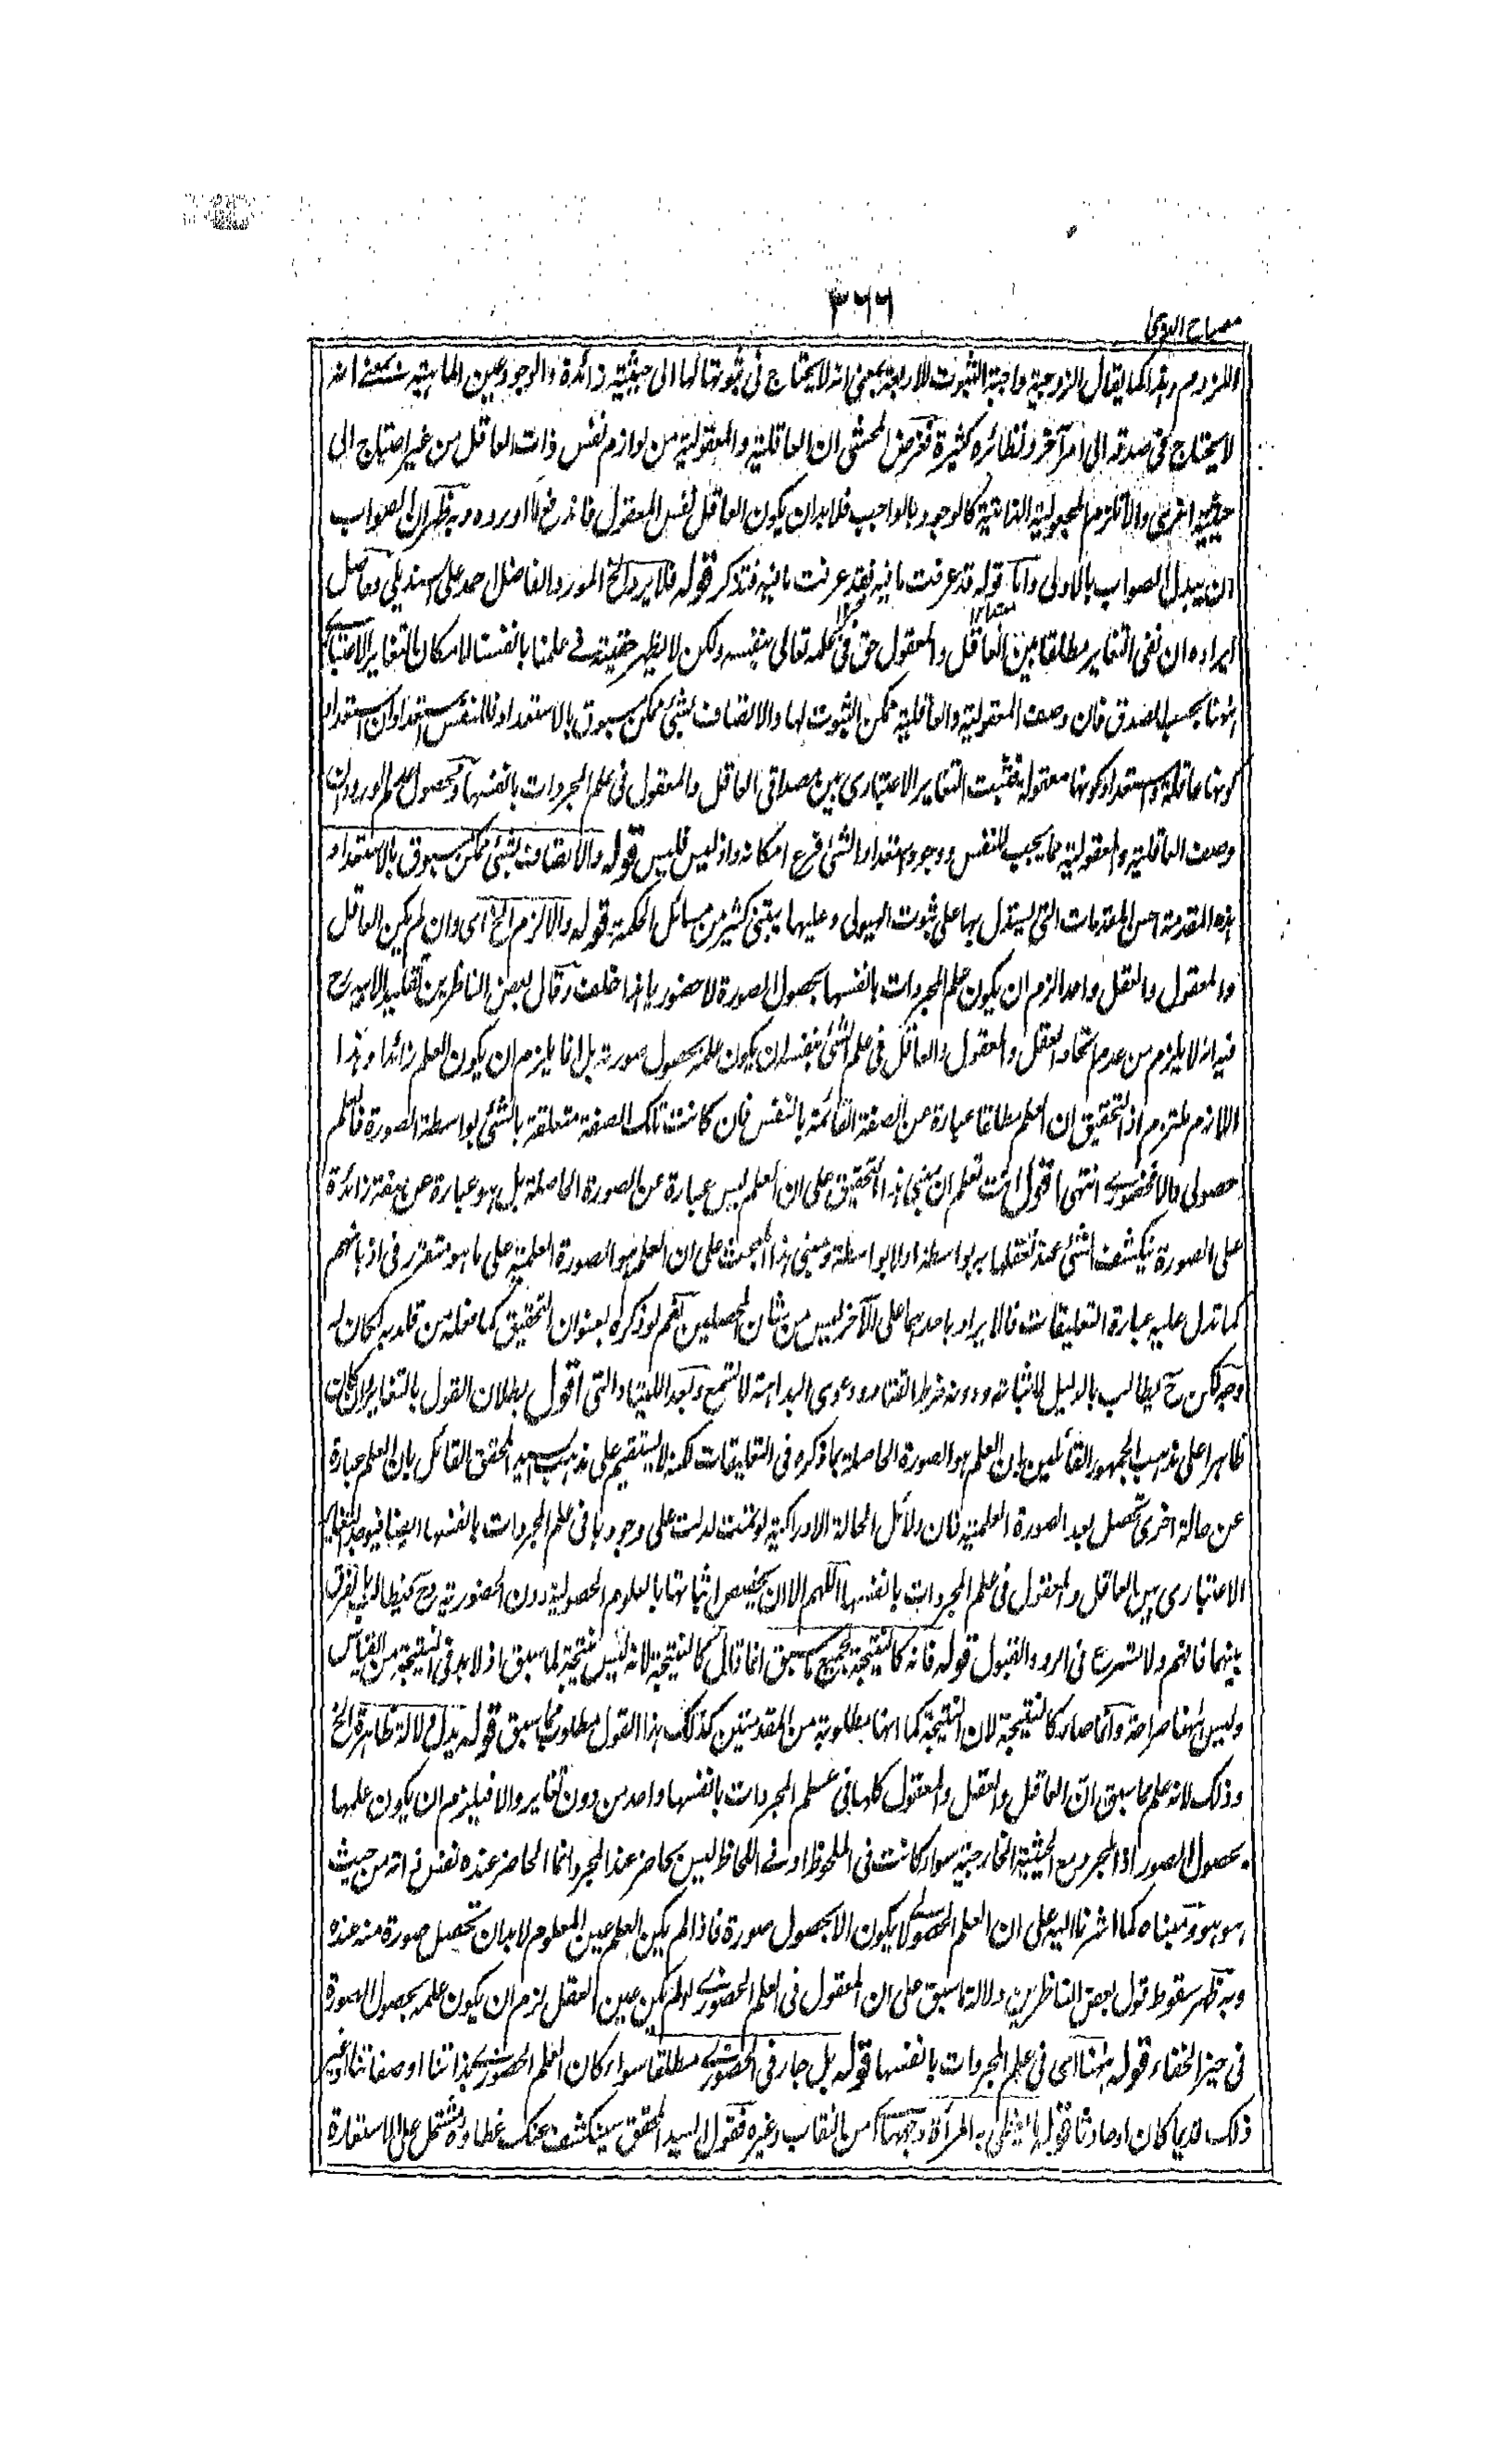 ٣٦٦
مصباح الدجى
والملزوم وهذا كما يقال الزوجية واجبة الثبوت للاربعة بمعنى انه لا يحتاج فى ثبوتها لها الى حيثية زائدة والوجود عين الماهية بمعنى انه
لا يحتاج فى صدقه الى امر آخر ونظائره كثيرة فغرض المحشى ان العاقلية والمعقولية من لوازم نفس ذات العاقل من غير احتياج الى
حيثية اخرى والا تلزم المجعولية الذاتية كالوجود بالواجب فلا بد ان يكون العاقل نفس المعقول فاندفع ما اورده وبه ظهر ان الصواب
ان يبدل الصواب بالاولى واما قوله قد عرفت ما فيه فقد عرفت ما فيه فتذكر قوله فلا يرد الخ المورد الفاضل احمد على السنديلى وحاصل
ايراده ان نفى التغاير مطلقا بين العاقل والمعقول حق فى علمه تعالى بنفسه ولكن لا يظهر حقيته فى علمنا بانفسنا لامكان التغاير الاعتبارى
ههنا بحسب المصدق فان وصف المعقولية والعاقلية ممكن الثبوت لها والاتصاف بشئ ممكن مسبوق بالاستعداد فللنفس استعدادان استعداد
كونها عاقلة واستعداد كونها معقولة فثبت التغاير الاعتبارى بين مصداقى العاقل والمعقول فى علم المجردات بانفسها ومحصول عدم الورود ان
وصف العاقلية والمعقولية مما يجب للنفس ووجود استعداد الشئ فرع امكانه واذ ليس فليس قوله والاتصاف بشئ ممكن مسبوق بالاستعداد
هذه المقدمة احسن المقدمات التى يستدل بها على ثبوت الهيولى وعليها يبتنى كثير من مسائل الحكمة قوله والا لزم الخ اى وان لم يكن العاقل
والمعقول والعقل واحدا لزم ان يكون علم المجردات بانفسها بحصول الصورة لا حضوريا هذا خلف وقال بعض الناظرين تقليد الابيه رح
فيه انه لا يلزم من عدم اتحاد العقل والمعقول والعاقل فى علم الشئ بنفسه ان يكون علمه بحصول صورته بل انما يلزم ان يكون العلم زائدا وهذا
اللازم ملتزم اذ التحقيق ان العلم مطلقا عبارة عن الصفة القائمة بالنفس فان كانت تلك الصفة متعلقة بالشئ بواسطة الصورة فالعلم
حصولى والا فحضورى انتهى اقول انت تعلم ان مبنى هذا التحقيق على ان العلم ليس عبارة عن الصورة الحاصلة بل هو عبارة عن صفة زائدة
على الصورة ينكشف الشئ عند تعقلها به بواسطة او لا بواسطة ومبنى هذا البحث على ان العلم هو الصورة العلمية على ما هو متقرر فى اذهانهم
كما تدل عليه عبارة التعليقات فالايراد باحدهما على الآخر ليس من شان المحصلين نعم لو ذكره بعنوان التحقيق كما فعله من قلد به لكان له
وجه لكن ح يطالب بالدليل لاثباته ودونه خرط القتاد ودعوى البداهة لا تسمع وبعد اللتيا والتى اقول بطلان القول بالتغاير وان كان
ظاهرا على مذهب الجمهور القائلين بان العلم هو الصورة الحاصلة بما ذكره فى التعليقات لكنه لا يستقيم على مذهب السيد المحقق القائل بان العلم عبارة
عن حالة اخرى تحصل بعد الصورة العلمية فان دلائل الحالة الادراكية لو تمت لدلت على وجودها فى علم المجردات بانفسها ايضا فيوجد التغاير
الاعتبارى بين العاقل والمعقول فى علم المجردات بانفسها اللهم الا ان يخصص اثباتها بالعلوم الحصولية دون الحضورية وح فيطالب بالفرق
بينهما فافهم ولا تسرع فى الرد والقبول قوله فانه كالنتيجة لجميع ما سبق انما قال كالنتيجة لانه ليس نتيجة لما سبق اذ لا بد فى النتيجة من القياس
وليس ههنا صراحة وانما صار كالنتيجة لان النتيجة كما انها مطلوبة من المقدمتين كذلك هذا القول مطلوب مما سبق قوله يدل دلالة ظاهرة الخ
وذلك لانه علم مما سبق ان العاقل والعقل والمعقول كلها فى علم المجردات بانفسها واحد من دون تغاير والا فيلزم ان يكون علمها
بحصول الصور اذ المجرد مع الحيثية الخارجية سواء كانت فى الملحوظ او فى اللحاظ ليس بحاضر عند المجرد انما الحاضر عنده نفس ذاته من حيث
هو هو ومبناه كما اشرنا اليه على ان العلم الحصولى لا يكون الا بحصول صورة فاذا لم يكن العلم عين المعلوم لا بد ان تحصل صورة منه عنده
وبه ظهر سقوط قول بعض الناظرين دلالة ما سبق على ان المعقول فى العلم الحضورى لو لم يكن عين العقل لزم ان يكون علمه بحصول الصورة
فى حيز الخفاء قوله ههنا اى فى علم المجردات بانفسها قوله بل جار فى الحضورى مطلقا سواء كان العلم الحضورى بذاتنا او صفاتنا او غير
ذلك قديما كان او حادثا قوله ما يغطى به المرأة وجهها من النقاب وغيره فقول السيد المحقق سينكشف عنك غطاؤه مشتمل على الاستعارة